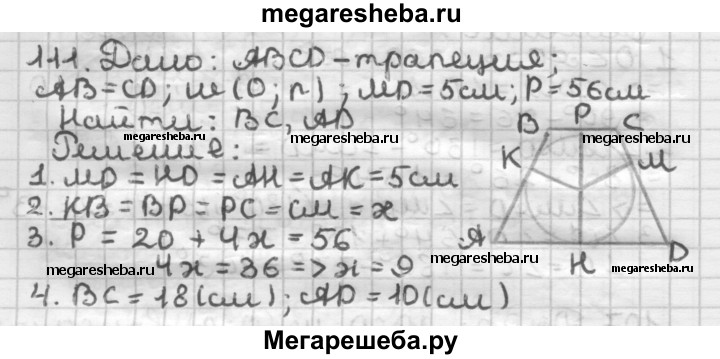 megaresheba.ru
111. Дано: ABCD – трапеция;
AB = CD; ш (O; r); MD = 5 см; P = 56 см
Найти: BC, AD
megaresheba.ru
megaresheba.ru
Решение:
1. MD = HD = AH = AK = 5 см
2. KB = BP = PC = CM = x
3. P = 20 + 4x = 56
4x = 36 => x = 9
megaresheba.ru
megaresheba.ru
4. BC = 18 (см); AD = 10 (см)
B P C
K M
A H D
Мегарешеба.ру